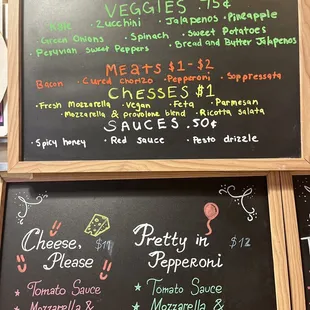 VEGGIES .75¢
· Kale · Zucchini · Jalapenos · Pineapple
· Green Onions · Spinach · Sweet Potatoes
· Peruvian Sweet Peppers · Bread and Butter Jalapenos
MEATS $1 - $2
Bacon · Cured Chorizo · Pepperoni · Soppressata
CHESSES $1
· Fresh Mozzarella · Vegan · Feta · Parmesan
· Mozzarella & provolone blend · Ricotta Salata
SAUCES .50¢
· Spicy honey · Red sauce · Pesto drizzle
Cheese, Please
* Tomato Sauce
* Mozzarella &
Pretty in Pepperoni $12
* Tomato Sauce
* Mozzarella &